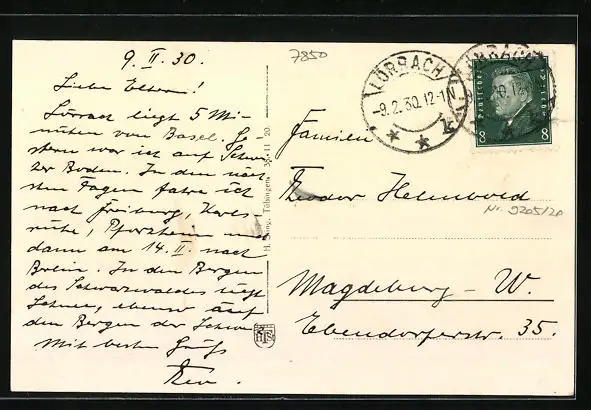 9. II. 30.
Liebe Eltern!
Lörrach liegt 5 Mi-
nuten von Basel. Ge-
stern war ich auf Schwei-
zer Boden. In den näch-
sten Tagen fahre ich
nach Freiburg, Karls-
ruhe, Pforzheim und
dann am 14. II. nach
Berlin. In den Bergen
des Schwarzwaldes liegt
Schnee, ebenso auf
den Bergen der Schweiz
Mit besten Gruß
7850
LÖRRACH
-9.2.30.12-1N
Deutsches Reich
8 8
Familien
Theodor Helmbold
Nr. 9205/20
Magdeburg - W.
Ebendorferstr. 35.
H. Sting, Tübingen 38 11 20
HST